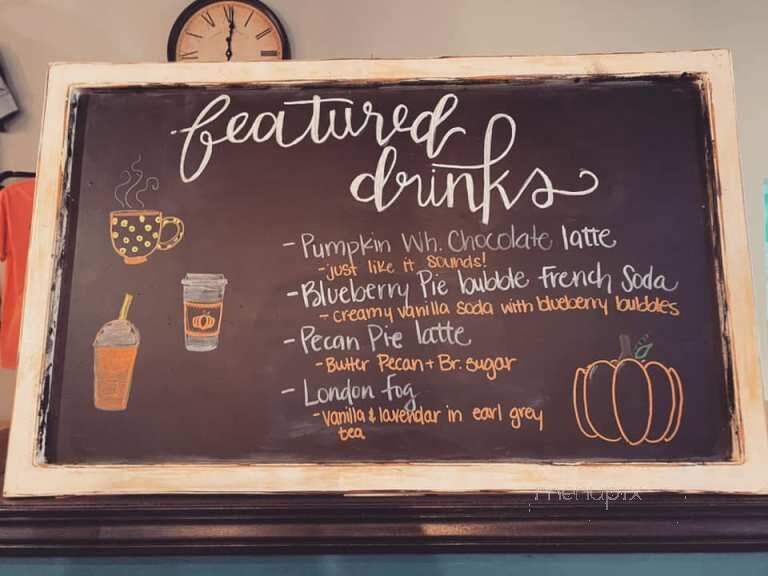 featured
drinks
- Pumpkin Wh. Chocolate latte
- just like it sounds!
- Blueberry Pie bubble French Soda
- creamy vanilla soda with blueberry bubbles
- Pecan Pie latte
- Butter Pecan + Br. sugar
- London fog
- vanilla & lavendar in earl grey
tea
menupix